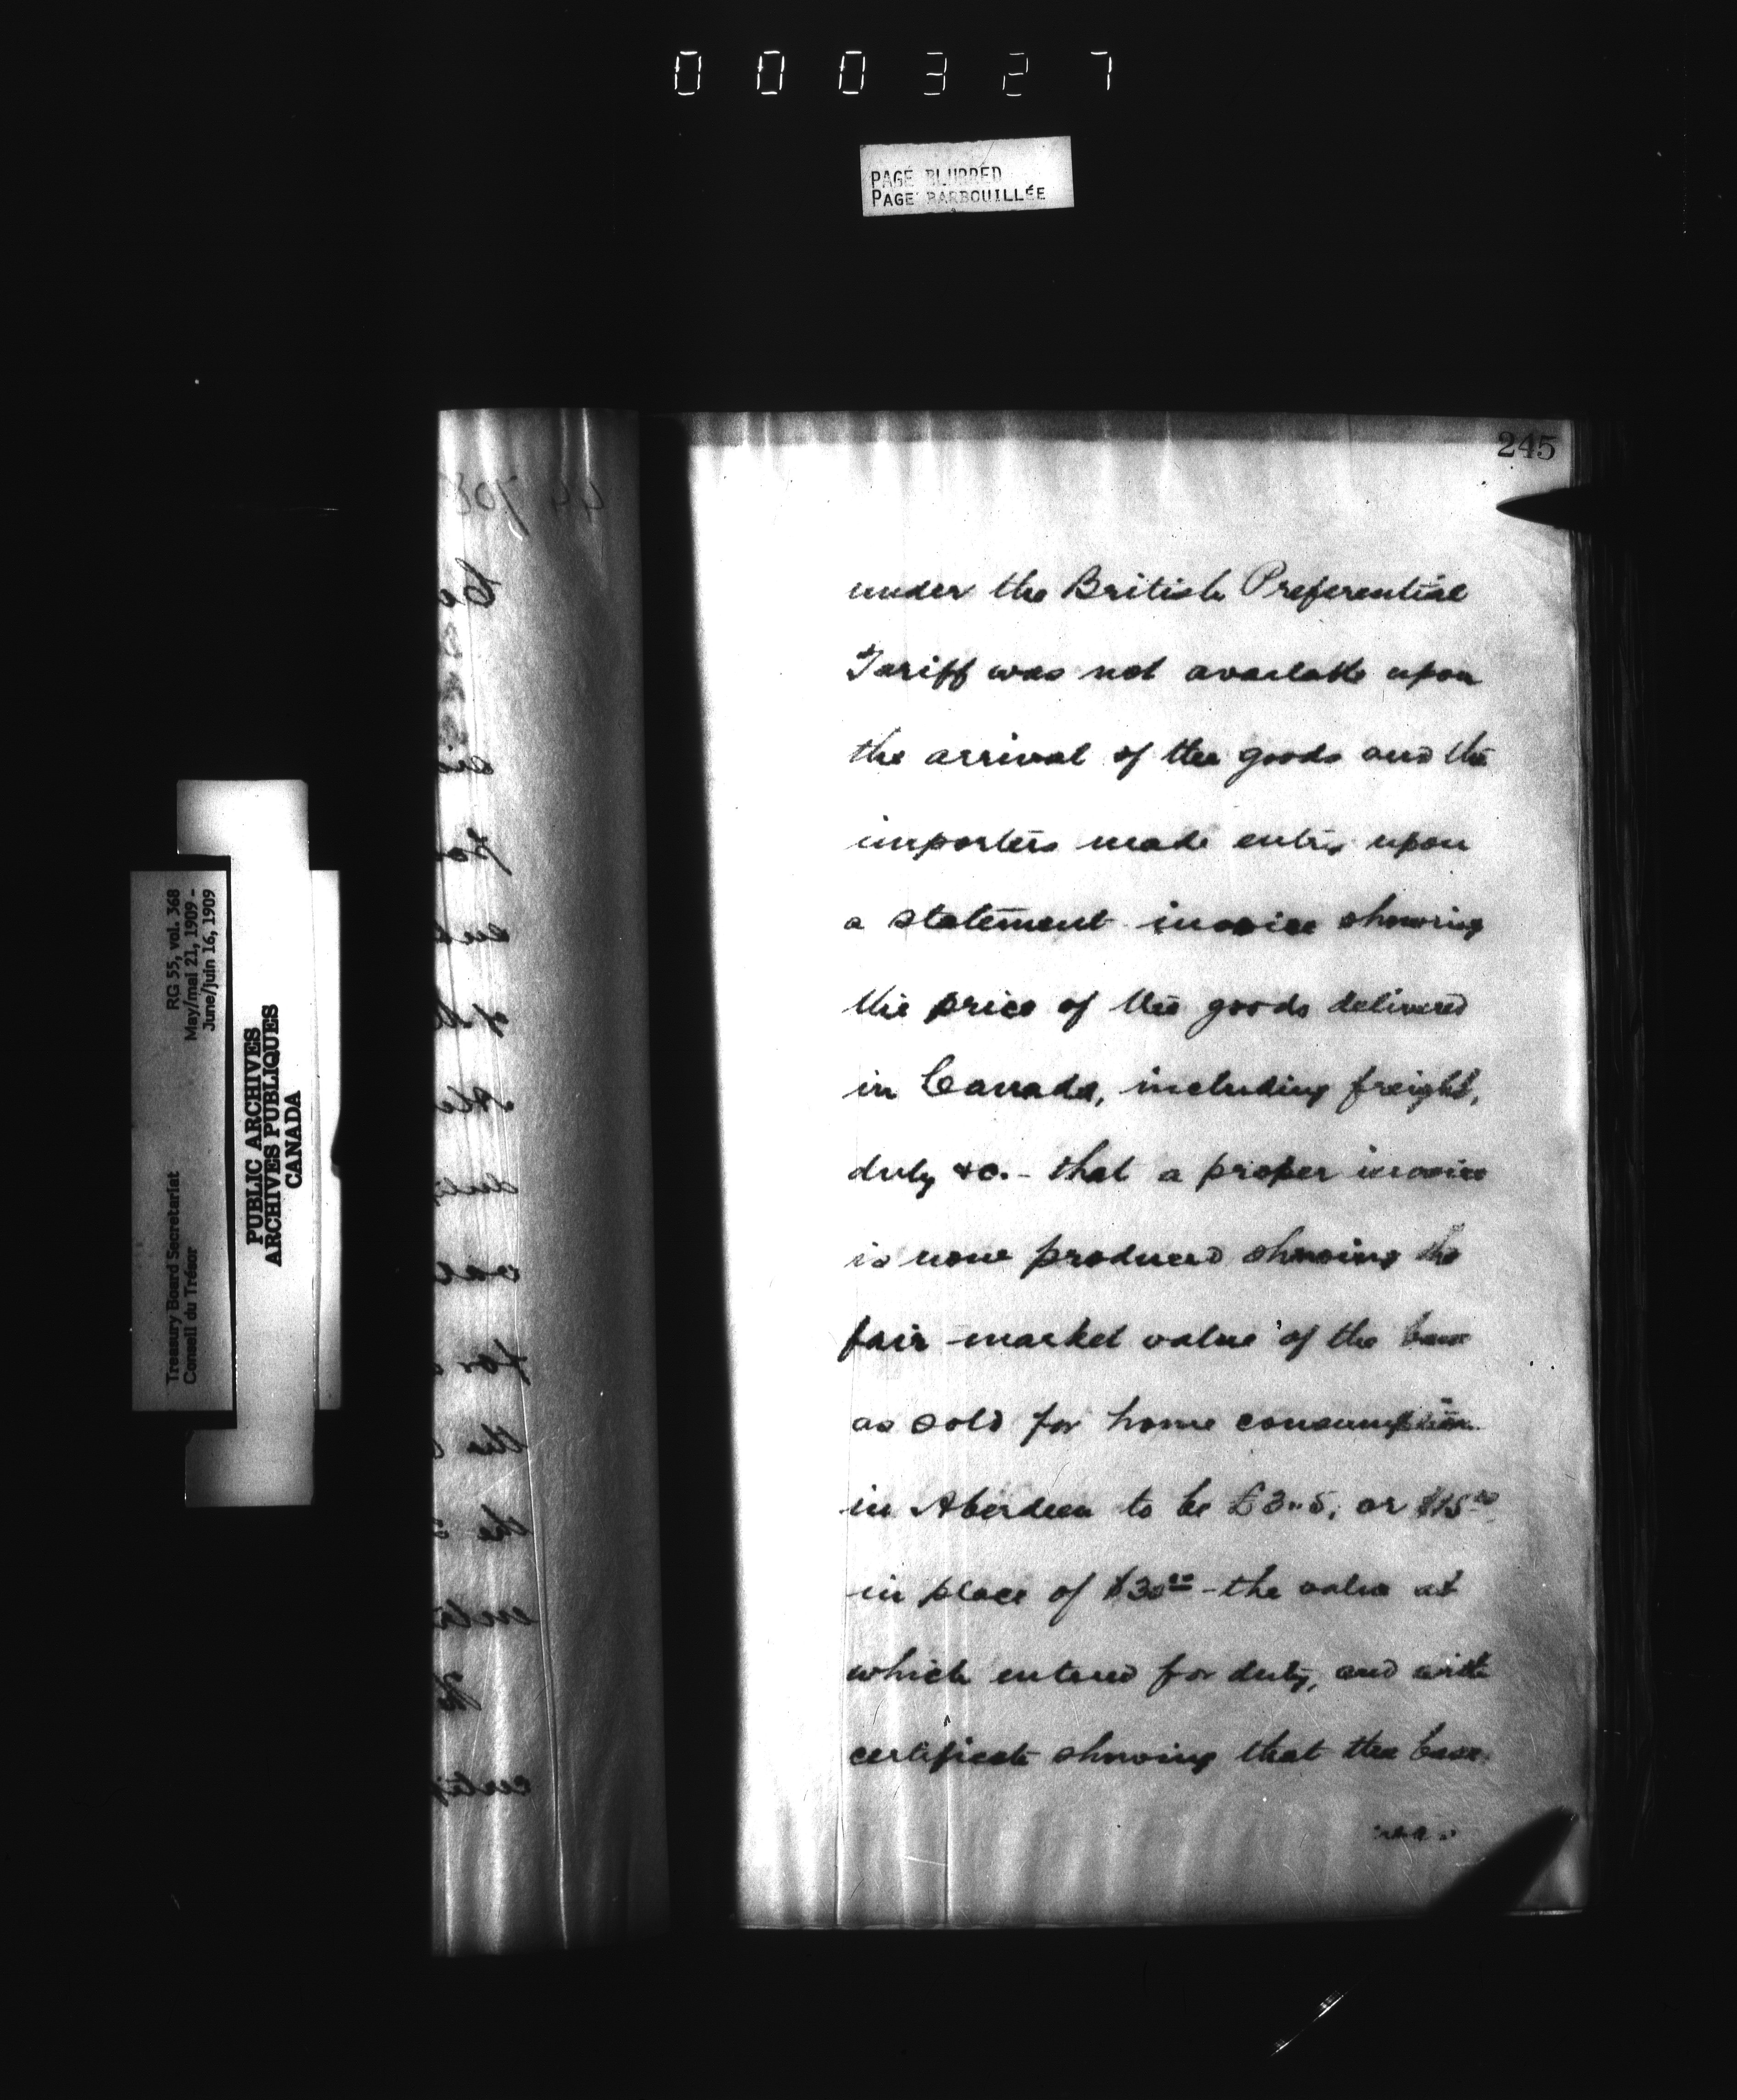 000327
PAGE BLURRED
PAGE BARBOUILLÉE
245
under the British Preferential
Tariff was not available upon
the arrival of the goods and the
importers made entry upon
a statement invoice showing
the price of the goods delivered
in Canada, including freight,
duty &c. - that a proper invoice
is now produced showing the
fair market value of the
as sold for home consumption
in Aberdeen to be £3..5. or $15
in place of $30 - the value at
which entered for duty, and with
certificate showing that the
RG 55, vol. 368
May/mai 21, 1909 -
June/juin 16, 1909
Treasury Board Secretariat
Conseil du Trésor
PUBLIC ARCHIVES
ARCHIVES PUBLIQUES
CANADA